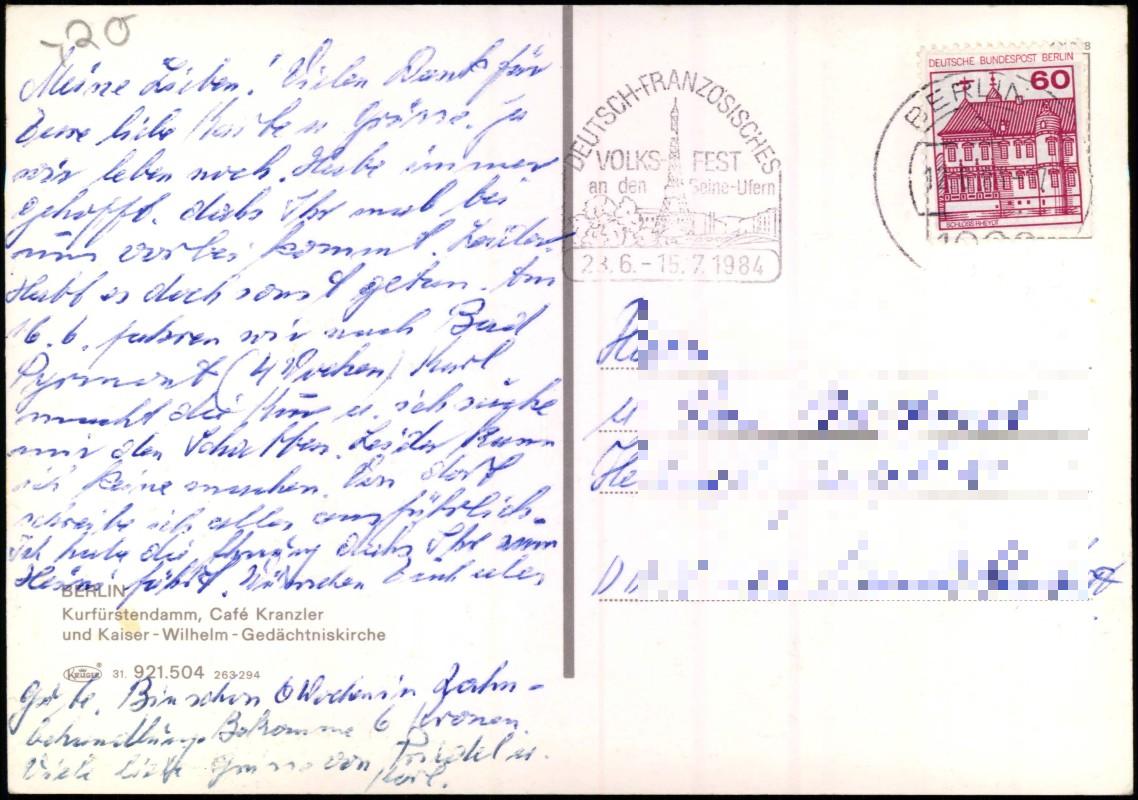 -20
Meine Lieben! Vielen Dank für
Eure liebe Karte u Grüsse. Ja
wir leben noch. Habe immer
gehofft, dahs Ihr mal bei
uns vorbei kommt. Leider
Habt es doch sonst getan. Am
16.6. fahren wir nach Bad
Pyrmont (4 Wochen) Karl
macht die Kur u. ich suche
mir den Schatten. Leider kann
ich keine machen. Von dort
schreibe ich alles ausführlich.
Ich habe die Ahnung dahs Ihr zum
Heini fährt. Wünschen Euch alles
BERLIN
Kurfürstendamm, Café Kranzler
und Kaiser-Wilhelm-Gedächtniskirche
KRÜGER 31. 921.504 263-294
Gute. Bin schon 6 Wochen in Zahn-
behandlung. Bekomme 6 Kronen.
Viele liebe Grüsse von Friedel u.
Karl.
DEUTSCH-FRANZÖSISCHES
VOLKS-FEST
an den Seine-Ufern
23.6.-15.7.1984
BERLIN
DEUTSCHE BUNDESPOST BERLIN
60
SCHLOSS RHEYDT